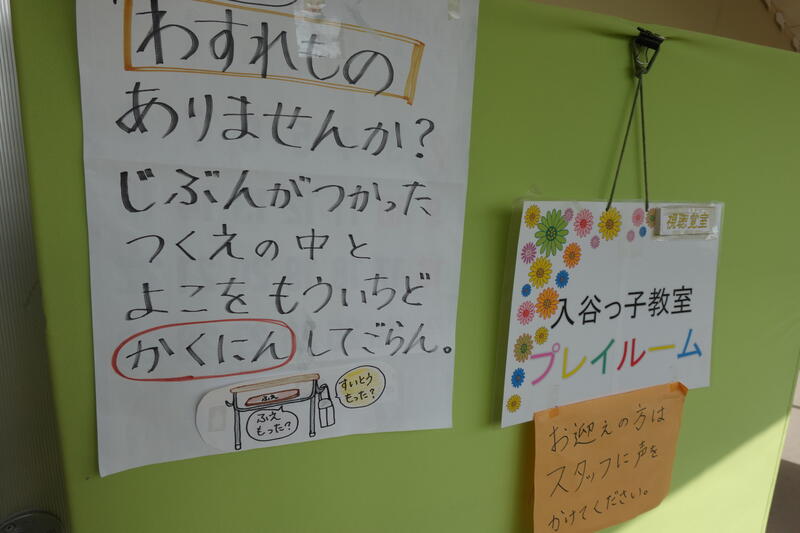 わすれもの
ありませんか？
じぶんがつかった
つくえの中と
よこをもういちど
かくにんしてごらん。
ふえ
ふえ
もった？
すいとう
もった？
視聴覚室
入谷っ子教室
プレイルーム
お迎えの方は
スタッフに声を
かけてください。